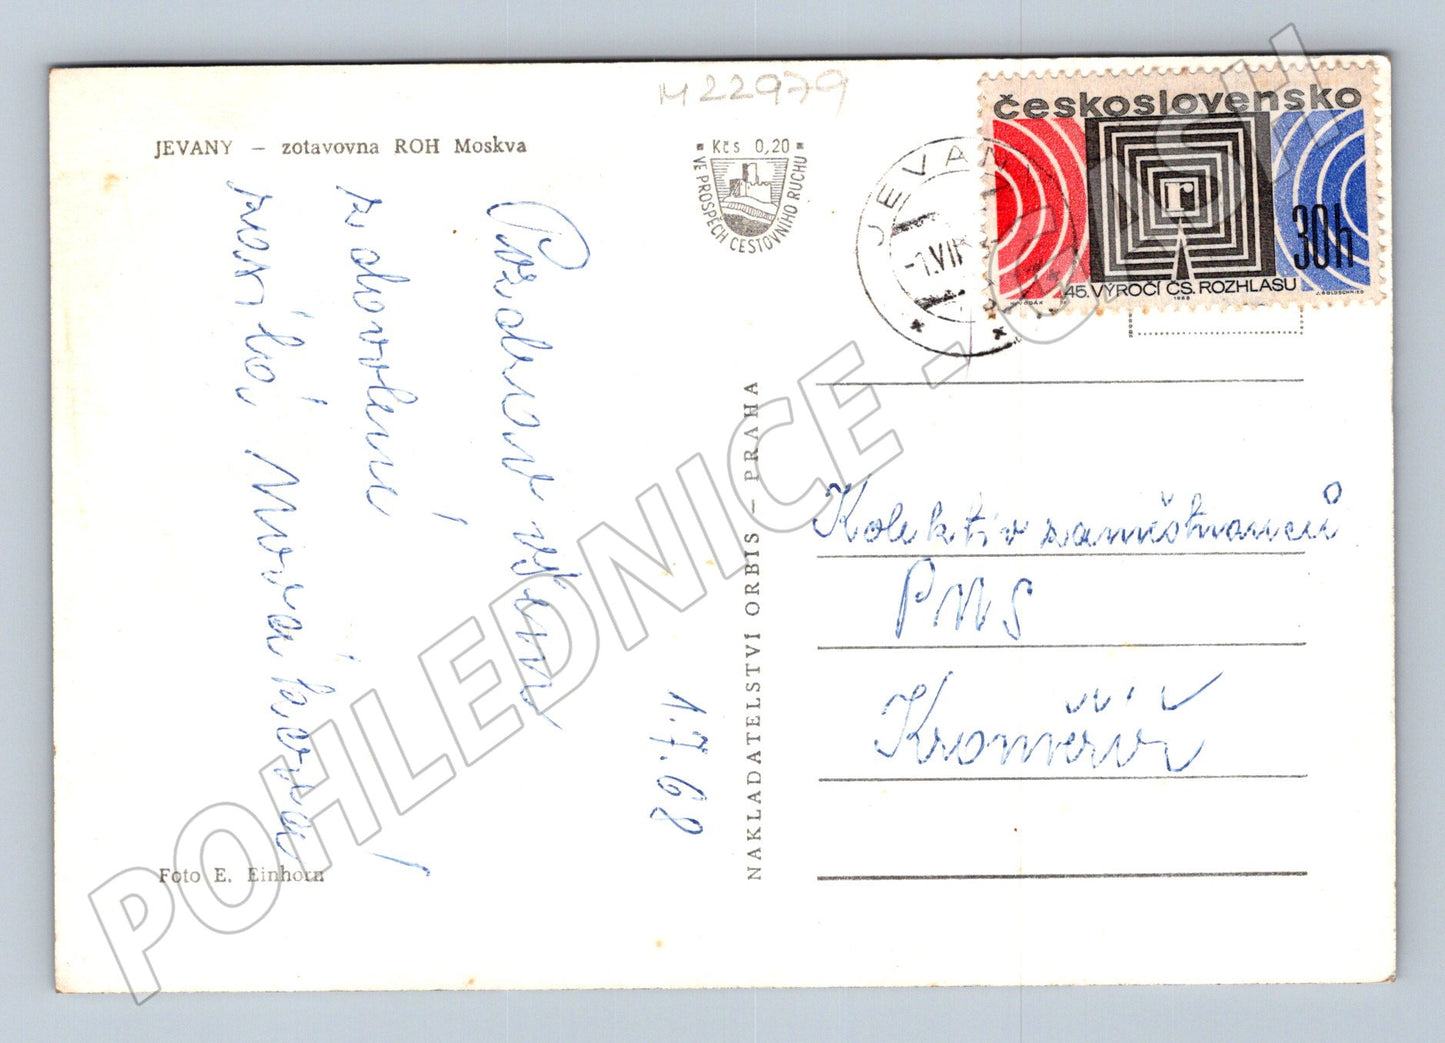 M 22979
JEVANY – zotavovna ROH Moskva
Kčs 0,20
VE PROSPĚCH CESTOVNÍHO RUCHU
JEVANY
-1.VII
československo
r
30h
45. VÝROČÍ ČS. ROZHLASU
1968
J. GOLDSCHMIED
Pozdrav vám
z dovolené
zasílá Nováková
1.7.68
NAKLADATELSTVÍ ORBIS – PRAHA
Kolektiv zaměstnanců
PNS
Kroměříž
Foto E. Einhorn
POHLEDNICE - CASH